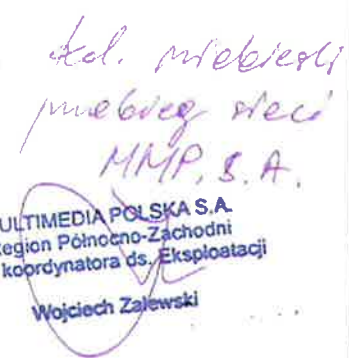 kol. niebieski
przebieg sieci
MMP. S. A.
ULTIMEDIA POLSKA S.A.
egion Północno-Zachodni
koordynatora ds. Eksploatacji
Wojciech Zalewski